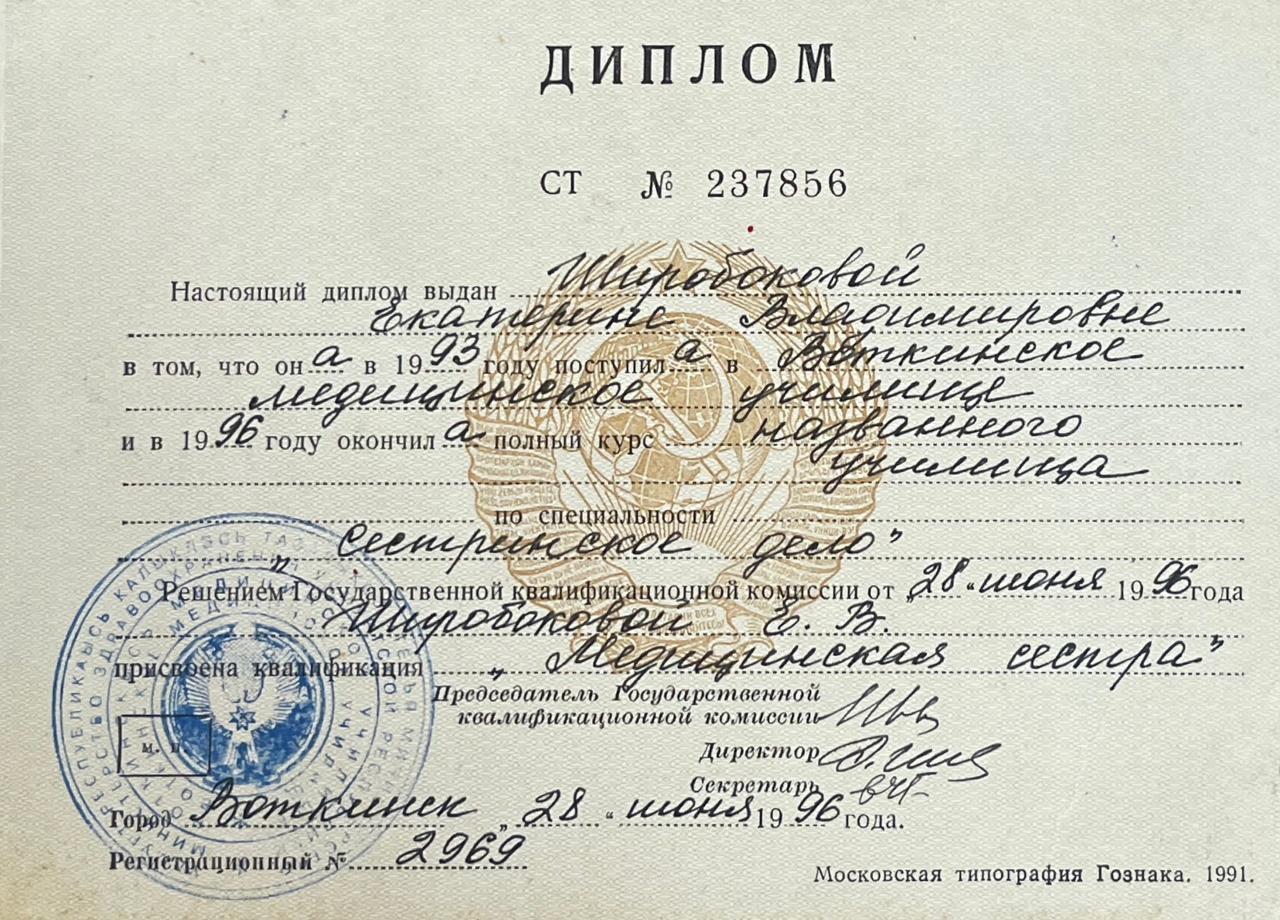 ДИПЛОМ
СТ № 237856
Настоящий диплом выдан Широбоковой
Екатерине Владимировне
в том, что он а в 19 93 году поступил а в Воткинское
медицинское училище
и в 19 96 году окончил а полный курс названного
училища
по специальности
"Сестринское дело"
Решением Государственной квалификационной комиссии от „28" июня 19 96 года
Широбоковой Е. В.
присвоена квалификация „Медицинская сестра"
Председатель Государственной
квалификационной комиссии
Директор
Секретарь
м. п.
Город Воткинск „28" июня 19 96 года.
Регистрационный № 2969
Московская типография Гознака. 1991.